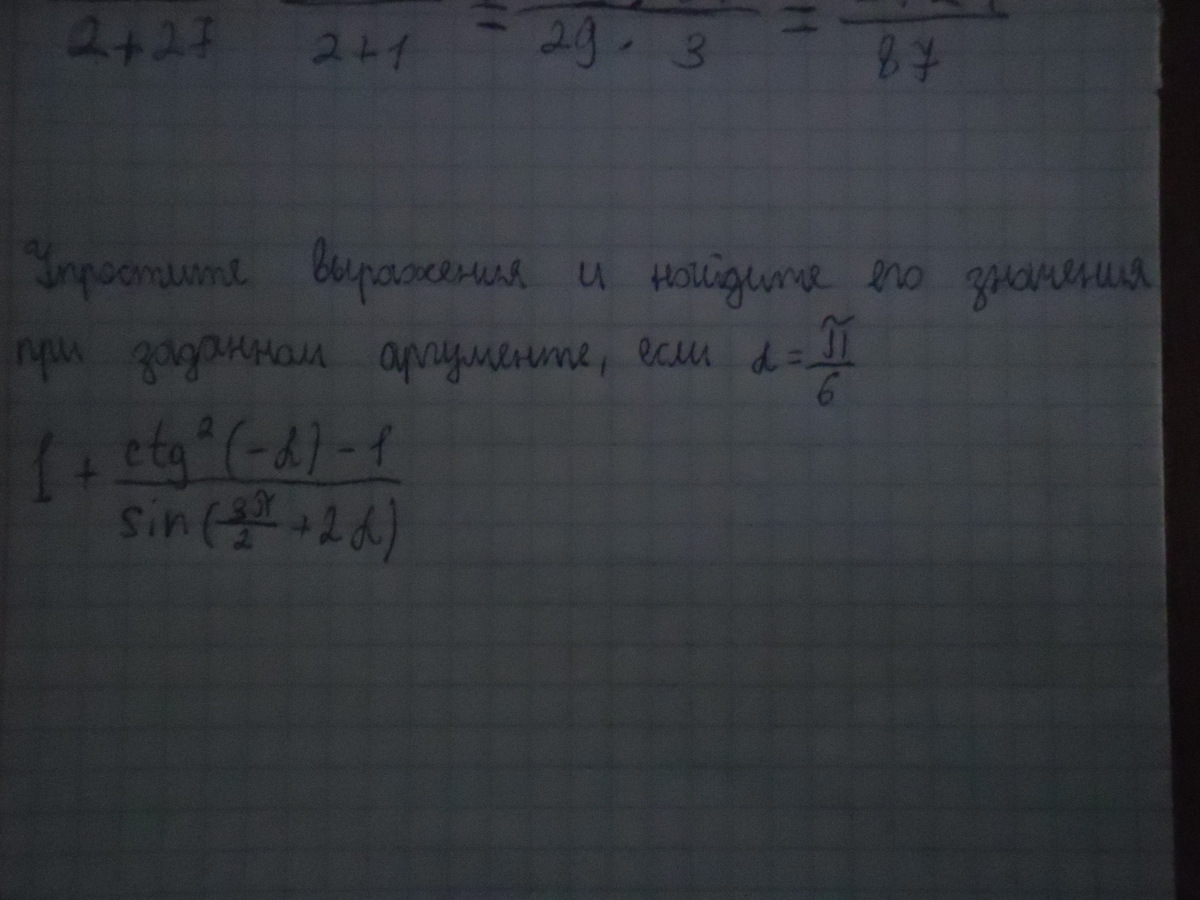 2+27 2+1 = 29 · 3 = 87
Упростите выражения и найдите его значения
при заданном аргументе, если α = π/6
1 + (ctg²(-α) - 1)/(sin(3π/2 + 2α))